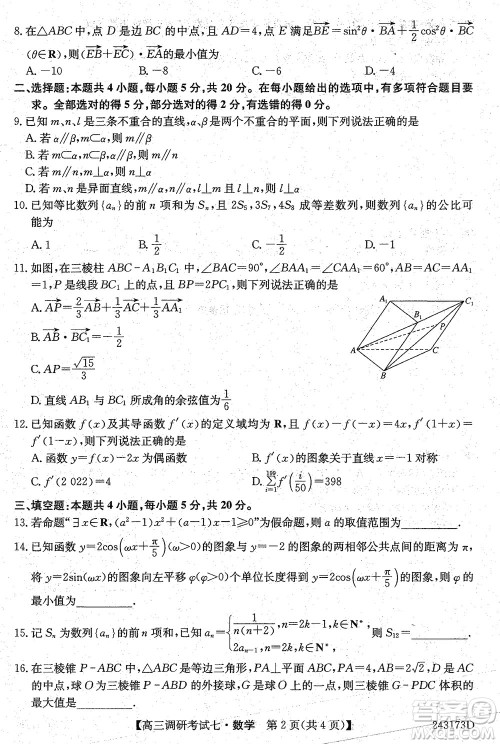 8. 在△ABC 中,点 D 是边 BC 的中点,且 AD=4,点 E 满足$\overrightarrow{BE}=\sin^2\theta\cdot\overrightarrow{BA}+\frac{1}{2}\cos^2\theta\cdot\overrightarrow{BC}$
(θ∈R),则($\overrightarrow{EB}+\overrightarrow{EC}$)·$\overrightarrow{EA}$的最小值为
A. -10 B. -8 C. -6 D. -4
二、选择题:本题共 4 小题,每小题 5 分,共 20 分。在每小题给出的选项中,有多项符合题目要
求。全部选对的得 5 分,部分选对的得 2 分,有选错的得 0 分。
9. 已知 m、n、l 是三条不重合的直线,α、β 是两个不重合的平面,则下列说法正确的是
A. 若 α∥β,m⊂α,则 m∥β B. 若 m⊂α,m∥β,则 α∥β
C. 若 α∥β,m⊂α,n⊂β,则 m∥n D. 若 m、n 是异面直线,l⊥m 且 l⊥n,则 l⊥α
10. 已知等比数列{aₙ}的前 n 项和为 Sₙ,且 2S₅,3S₇,S₉ 成等差数列,则{aₙ}的公比可
能为
A. 1 B. $\frac{1}{2}$ C. $-\frac{1}{2}$ D. -1
11. 如图,在三棱柱 ABC-A₁B₁C₁ 中,∠BAC=90°,∠BAA₁=∠CAA₁=60°,AB=AC=AA₁=
1,P 是线段 BC₁ 上一点,且 BP=2PC₁,则下列说法正确的是
A. $\overrightarrow{AP}=\frac{2}{3}\overrightarrow{AB}+\frac{1}{3}\overrightarrow{AC}+\frac{1}{3}\overrightarrow{AA_1}$
B. $\overrightarrow{AB}\cdot\overrightarrow{BC_1}=-\frac{1}{2}$
C. $AP=\frac{\sqrt{15}}{3}$
D. 直线 AB₁ 与 BC₁ 所成角的余弦值为$\frac{1}{6}$
A₁
C₁
B₁
P
A
C
B
12. 已知函数 f(x)及其导函数 f′(x)的定义域均为 R,且 f(1+x)-f(1-x)=4x,f′(1+x)=
f′(1-x),则下列说法正确的是
A. 函数 f(x)为偶函数 B. 函数 f(x)的图象关于直线 x=1 对称
C. f′(2 022)=4 D. $\sum_{i=1}^{199}f'\left(\frac{i}{50}\right)=398$
三、填空题:本题共 4 小题,每小题 5 分,共 20 分。
13. 若命题“∃x∈R,(a²-1)x²+(a-1)x-1≥0”为假命题,则实数 a 的取值范围为________.
14. 已知函数 $y=2\cos\left(\omega x+\frac{\pi}{5}\right)$(ω>0)的图象与 x 轴的两相邻公共点间的距离为 π,
将 y=2sin(ωx)的图象向左平移 φ(φ>0)个单位得到 $y=2\cos\left(\omega x+\frac{\pi}{5}\right)$的图象,则 φ 的
最小值为________.
15. 记 Sₙ 为数列{aₙ}的前 n 项和,已知 $a_n=\begin{cases}\frac{1}{n(n+2)},n=2k-1,k\in N^*,\\2a_{n-1},n=2k,k\in N^*,\end{cases}$则 S₁₂=________.
16. 在三棱锥 P-ABC 中,△ABC 是等边三角形,PA⊥平面 ABC,PA=2AB,在三棱锥
【高三调研考试七·数学 第 2 页(共 4 页)】 243173D